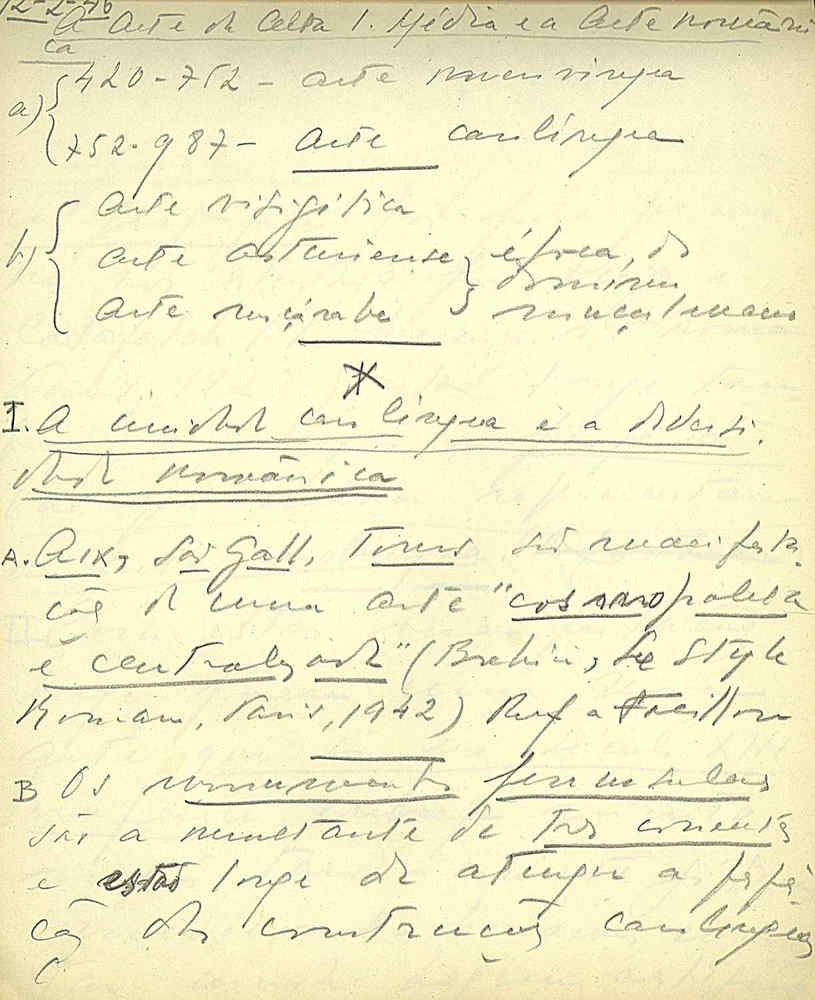 12-2-76
A Arte da Alta I. Média e a Arte românica
a) 420-752 - arte merovíngea
752-987 - arte carolíngea
b) arte visigótica
arte asturiense } época do domínio
arte moçárabe } muçulmano
I. A unidade carolíngea e a diversi-
dade românica
A. Aix, São Gall, Tours são manifesta-
ções de uma arte "cosmopolita
e centralizada" (Bréhier, Le Style
Roman, Paris, 1942) Ref a Focillon
B Os monumentos peninsulares
são a resultante de três correntes
e estão longe de atingir a
das construções carolíngeas